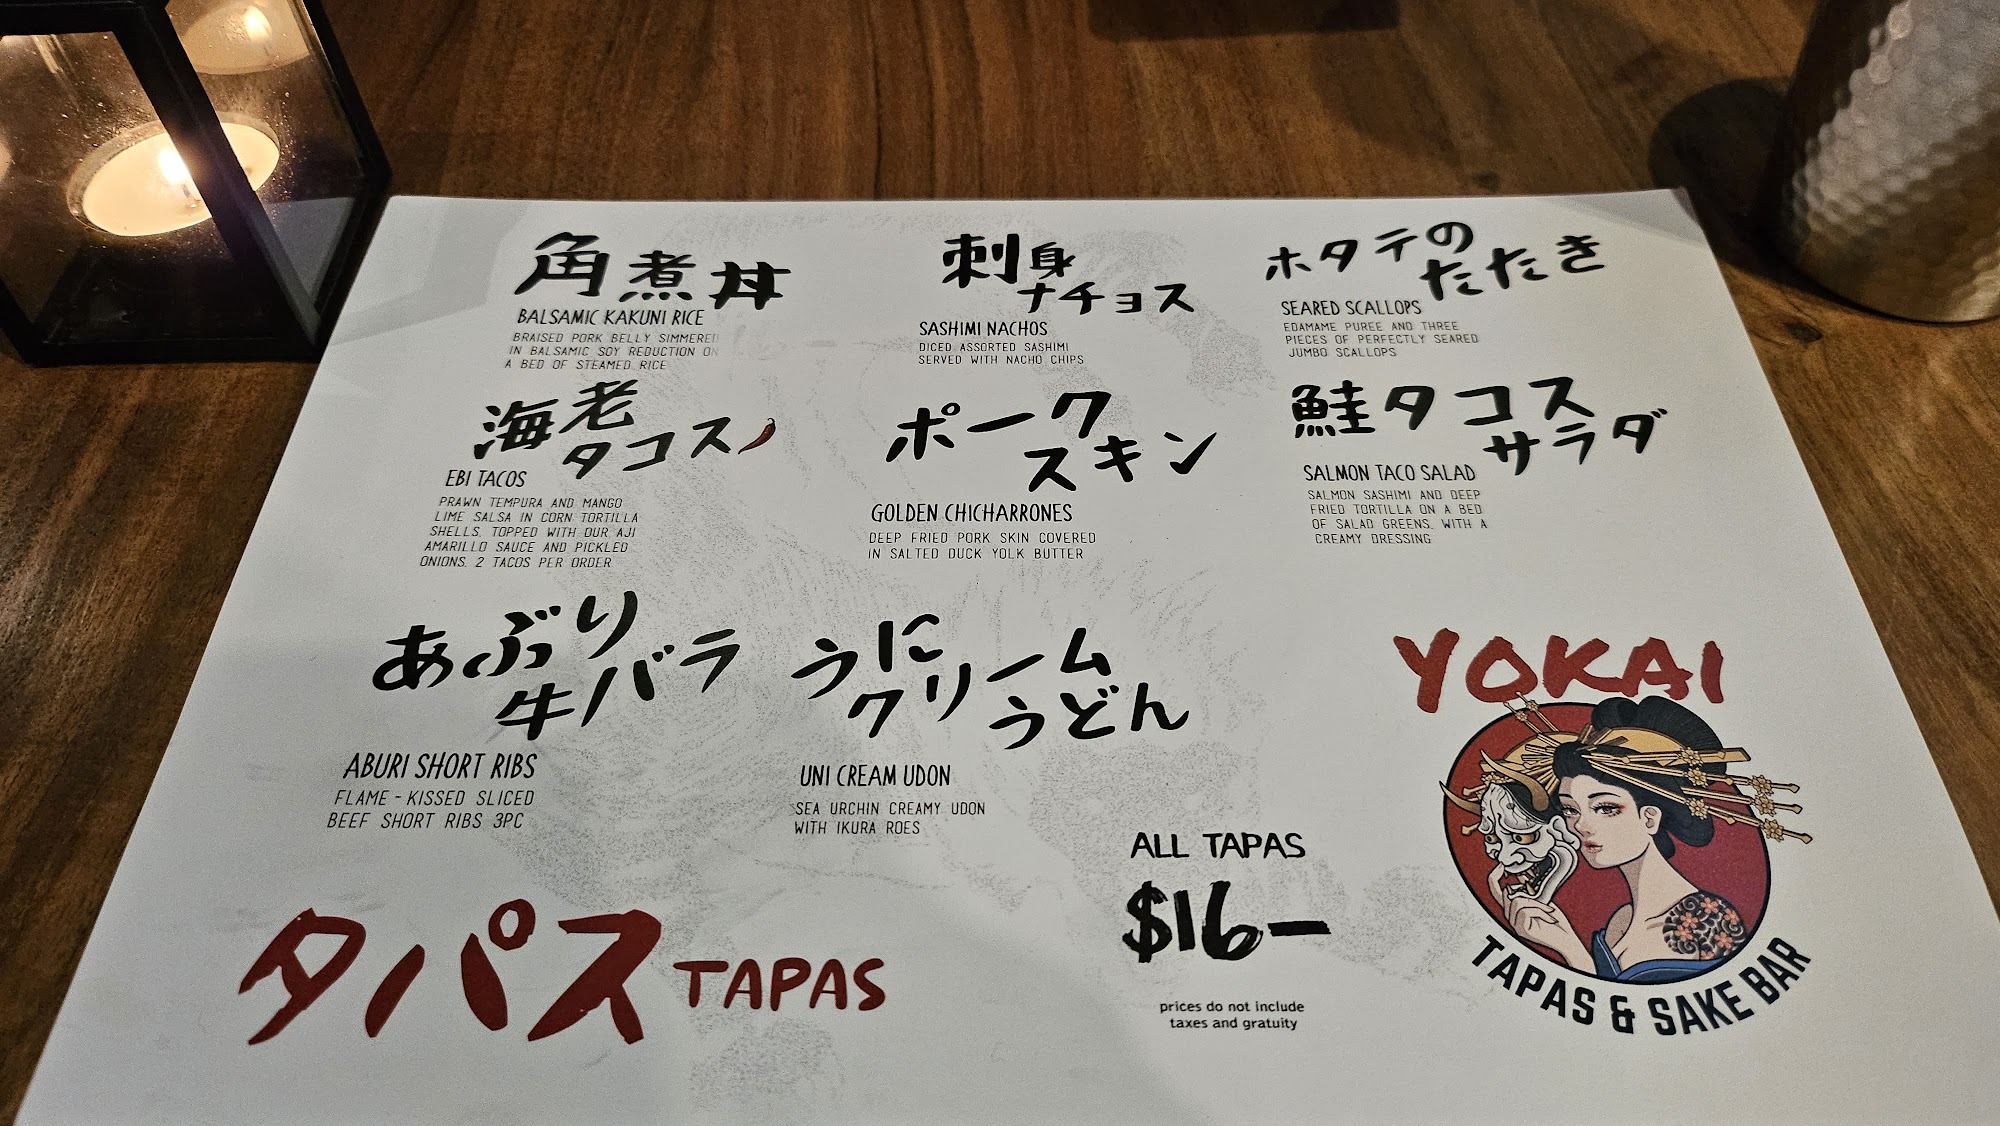 角煮丼
BALSAMIC KAKUNI RICE
BRAISED PORK BELLY SIMMERED
IN BALSAMIC SOY REDUCTION ON
A BED OF STEAMED RICE
刺身
ナチョス
SASHIMI NACHOS
DICED ASSORTED SASHIMI
SERVED WITH NACHO CHIPS
ホタテの
たたき
SEARED SCALLOPS
EDAMAME PUREE AND THREE
PIECES OF PERFECTLY SEARED
JUMBO SCALLOPS
海老
タコス
EBI TACOS
PRAWN TEMPURA AND MANGO
LIME SALSA IN CORN TORTILLA
SHELLS. TOPPED WITH OUR AJI
AMARILLO SAUCE AND PICKLED
ONIONS. 2 TACOS PER ORDER
ポーク
スキン
GOLDEN CHICHARRONES
DEEP FRIED PORK SKIN COVERED
IN SALTED DUCK YOLK BUTTER
鮭タコス
サラダ
SALMON TACO SALAD
SALMON SASHIMI AND DEEP
FRIED TORTILLA ON A BED
OF SALAD GREENS, WITH A
CREAMY DRESSING
あぶり
牛バラ
ABURI SHORT RIBS
FLAME-KISSED SLICED
BEEF SHORT RIBS 3PC
うに
クリーム
うどん
UNI CREAM UDON
SEA URCHIN CREAMY UDON
WITH IKURA ROES
タパス TAPAS
ALL TAPAS
$16—
prices do not include
taxes and gratuity
YOKAI
TAPAS & SAKE BAR